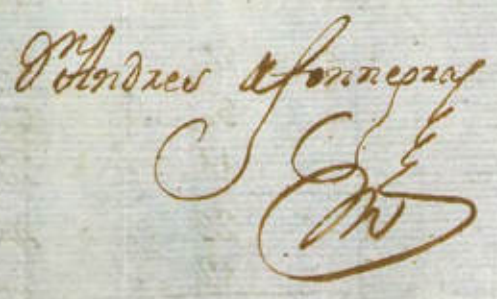 Dn Andres fonnegra